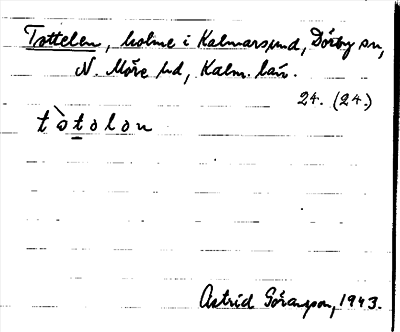 Tottelen, holme i Kalmarsund, Dörby sn,
N. Möre hd, Kalm. län.
24. (24.)
tòtolon
Astrid Göransson, 1943.